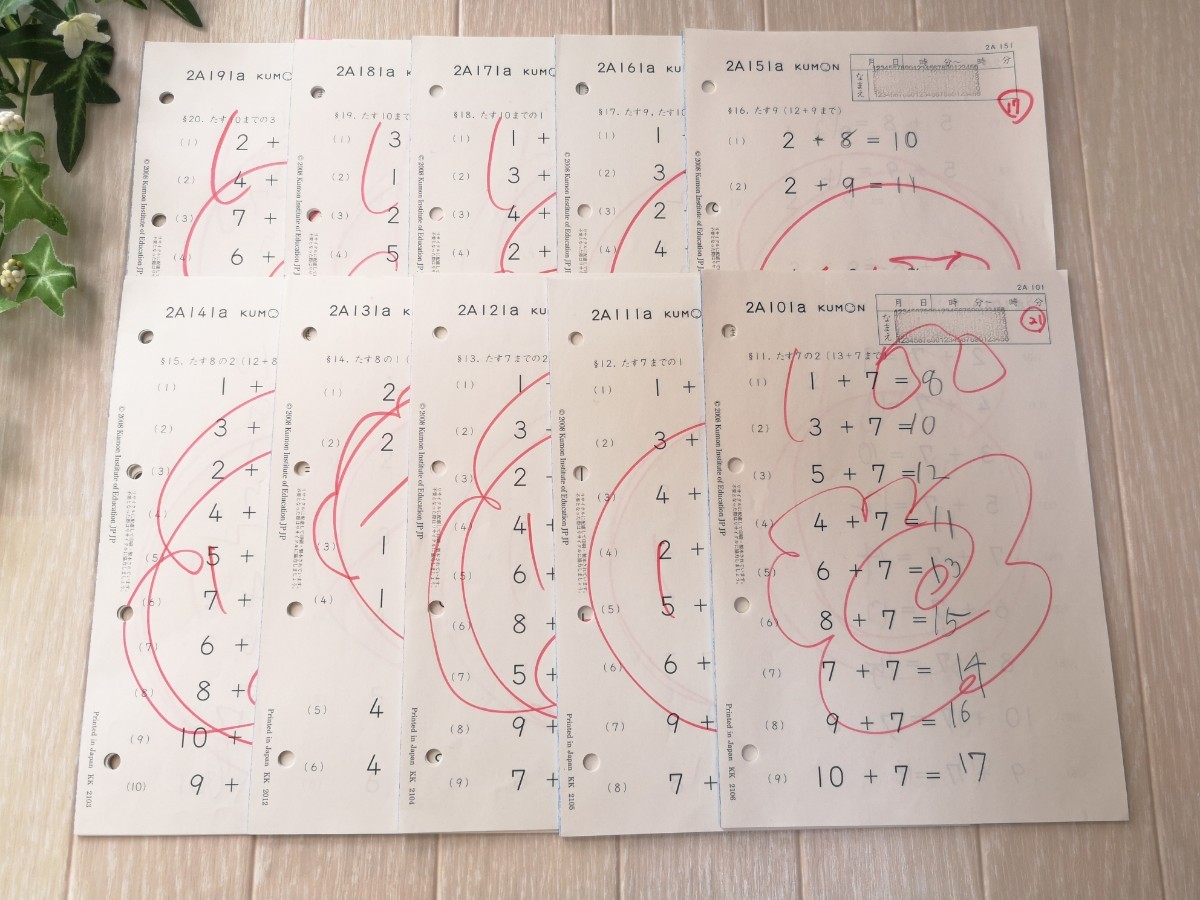 2A191a KUMO
§20. たす10までの3
(1) 2 +
(2) 4 +
(3) 7 +
(4) 6 +
© 2008 Kumon Institute of Education JP
2A181a K
§19. たす10まで
(1) 3
(2) 1
(3) 2
(4) 5
© 2008 Kumon Institute of Education JP
2A171a KU
§18. たす10までの1
(1) 1 +
(2) 3 +
(3) 4 +
(4) 2 +
© 2008 Kumon Institute of Education JP
2A161a KU
§17. たす9, たす10
(1) 1
(2) 3
(3) 2
(4) 4
© 2008 Kumon Institute of Education JP
2A 151
2A151a KUMON
月 日 時 分〜 時 分
なまえ
17
§16. たす9 (12+9まで)
(1) 2 + 8 = 10
(2) 2 + 9 = 11
© 2008 Kumon Institute of Education JP
2A141a KUMO
§15. たす8の2 (12+8
(1) 1 +
(2) 3 +
(3) 2 +
(4) 4 +
(5) 5 +
(6) 7 +
(7) 6 +
(8) 8 +
(9) 10 +
(10) 9 +
© 2008 Kumon Institute of Education JP
Printed in Japan KK 2103
2A131a K
§14. たす8の1 (
(1) 2
(2) 2
(3) 1
(4) 1
(5) 4
(6) 4
© 2008 Kumon Institute of Education JP
Printed in Japan KK 2012
2A121a KU
§13. たす7までの2
(1) 1
(2) 3
(3) 2
(4) 4 +
(5) 6 +
(6) 8 +
(7) 5 +
(8) 9 +
(9) 7 +
© 2008 Kumon Institute of Education JP
Printed in Japan KK 2104
2A111a KUMO
§12. たす7までの1
(1) 1 +
(2) 3 +
(3) 4 +
(4) 2 +
(5) 5 +
(6) 6 +
(7) 9 +
(8) 7 +
© 2008 Kumon Institute of Education JP
Printed in Japan KK 2105
2A 101
2A101a KUMON
月 日 時 分〜 時 分
なまえ
21
§11. たす7の2 (13+7まで
(1) 1 + 7 = 8
(2) 3 + 7 = 10
(3) 5 + 7 = 12
(4) 4 + 7 = 11
(5) 6 + 7 = 13
(6) 8 + 7 = 15
(7) 7 + 7 = 14
(8) 9 + 7 = 16
(9) 10 + 7 = 17
© 2008 Kumon Institute of Education JP
Printed in Japan KK 2106